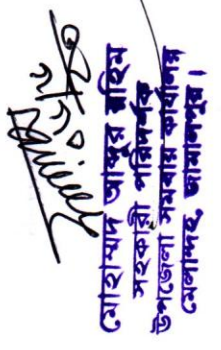 মোহাম্মদ আব্দুর রহিম
সহকারী পরিদর্শক
উপজেলা সমবায় কার্যালয়
মেলান্দহ, জামালপুর।